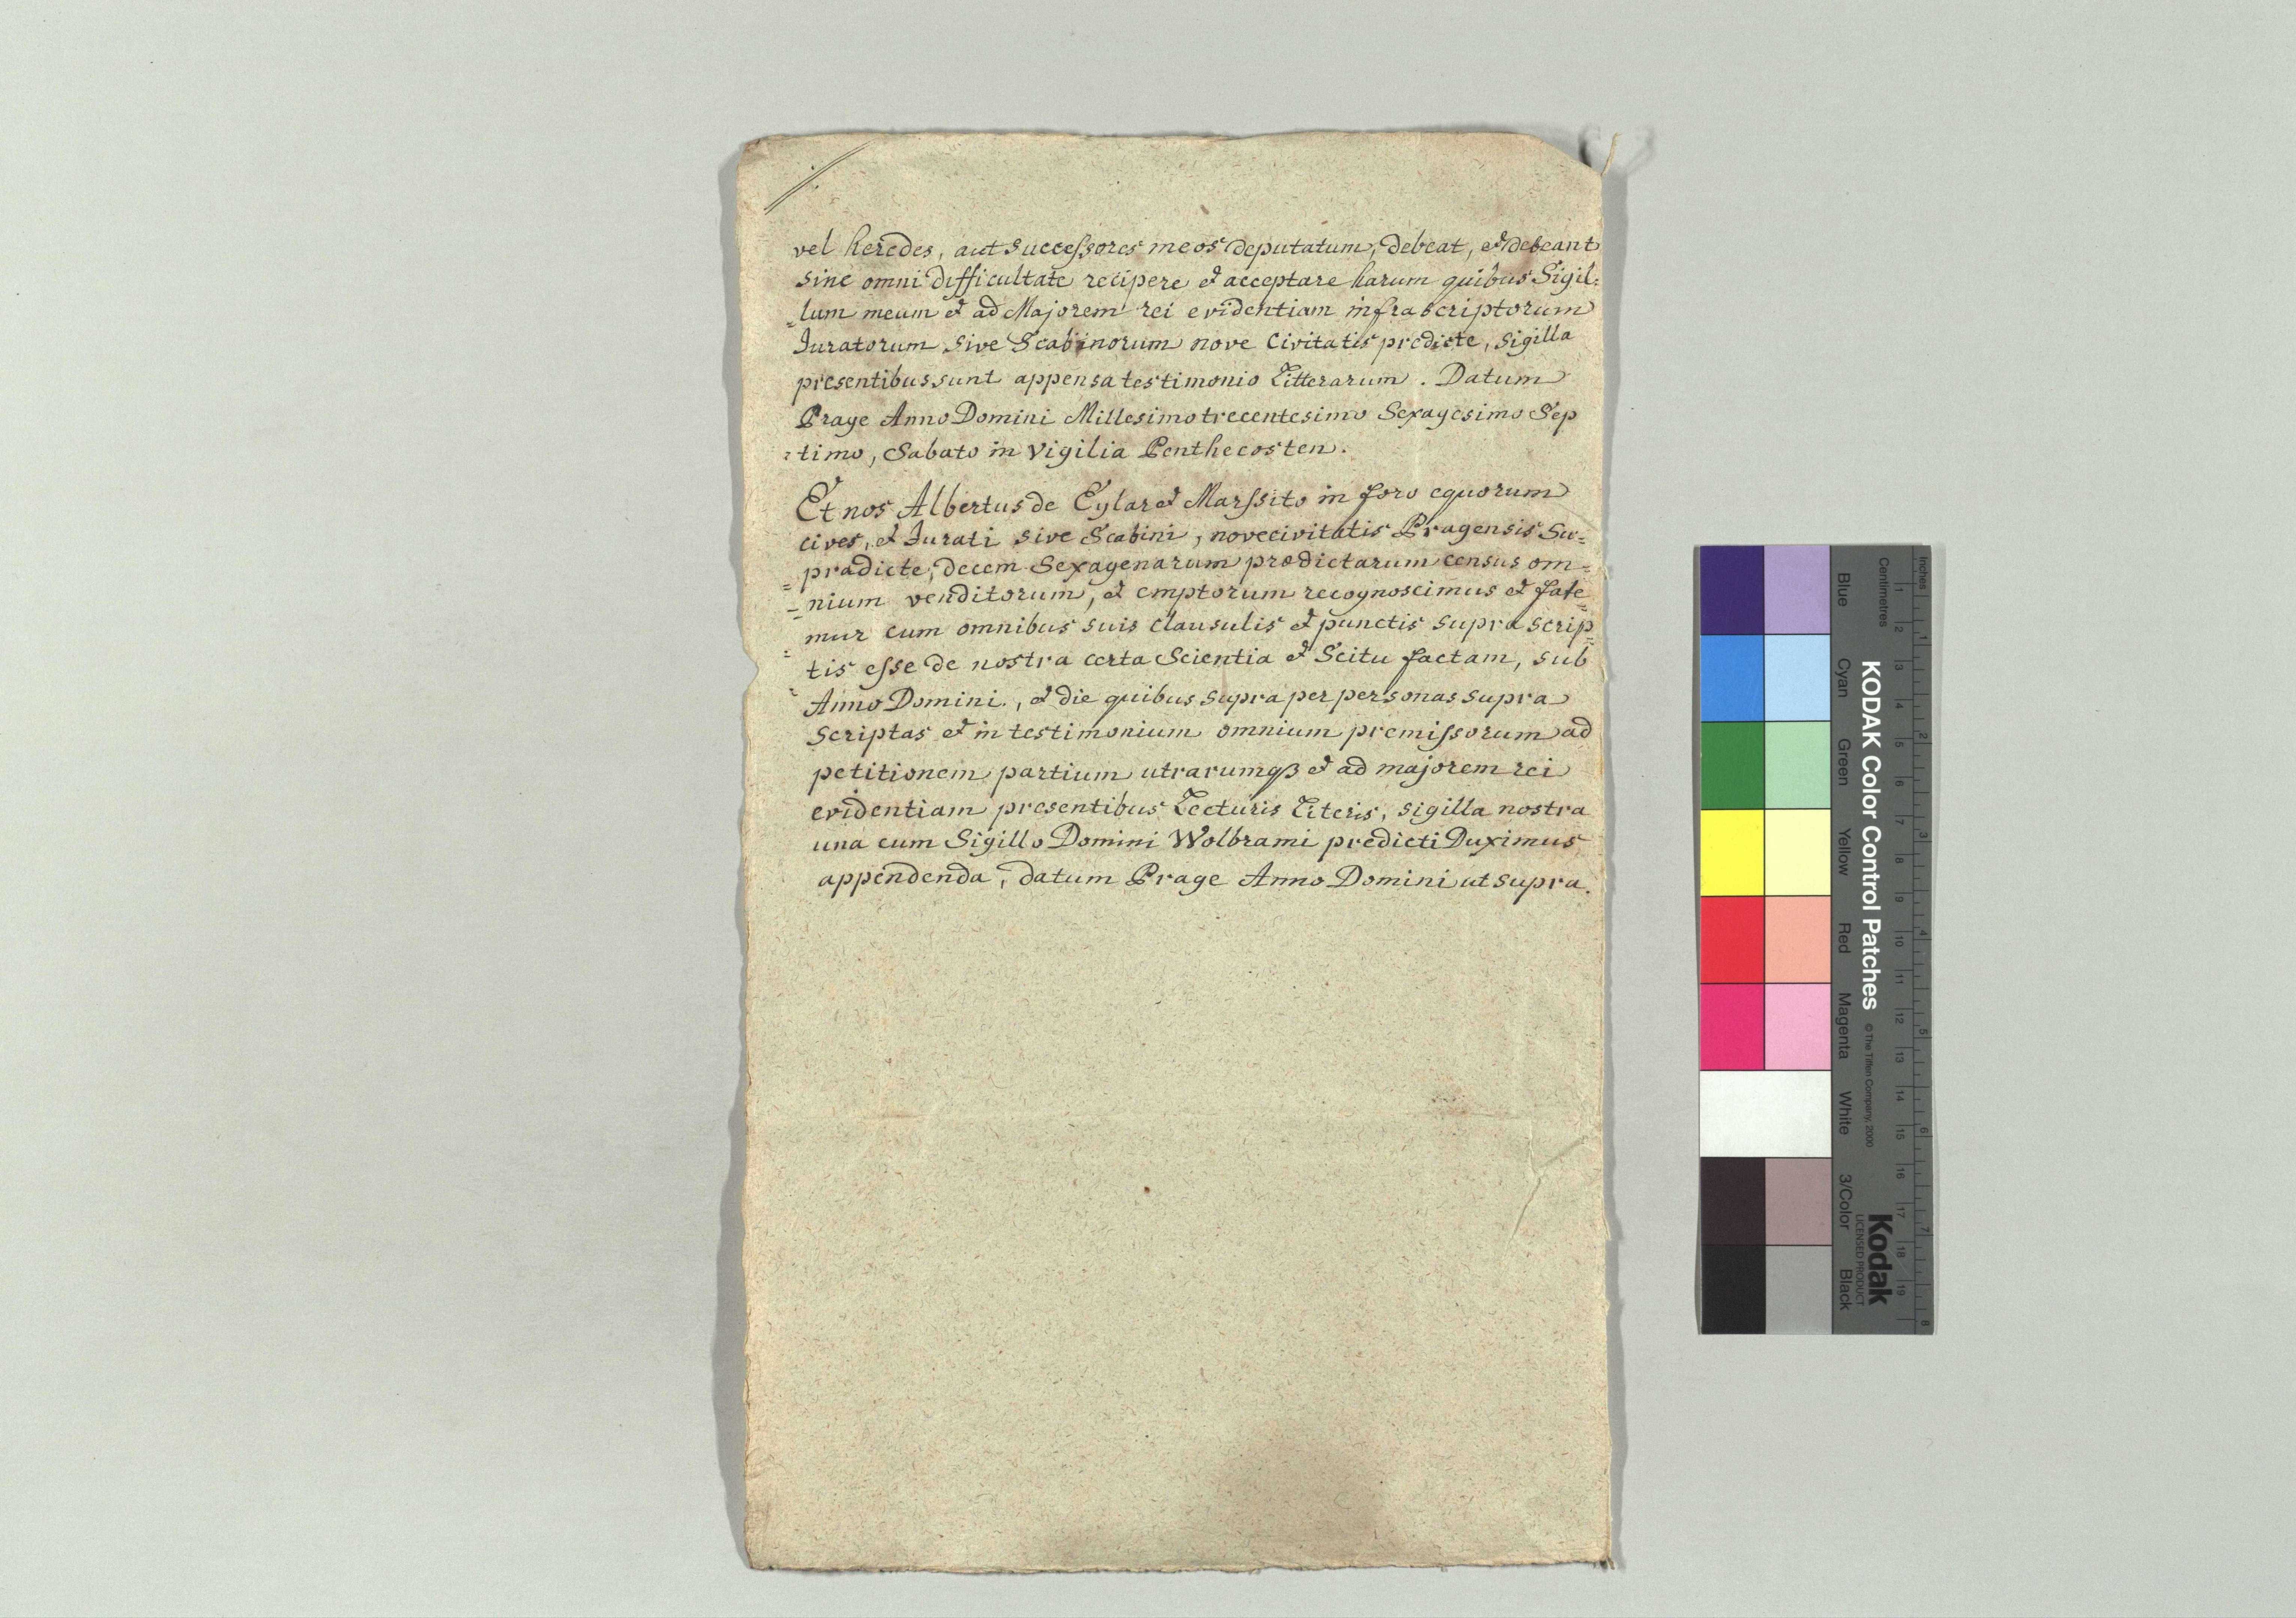 vel heredes, aut successores meos deputatum, debeat, et debeant
sine omni difficultate recipere et acceptare harum quibus Sigil=
=lum meum et ad Majorem rei evidentiam infrascriptorum
Juratorum sive Scabinorum nove Civitatis predicte, sigilla
presentibus sunt appensa testimonio Litterarum. Datum
Prage Anno Domini Millesimo trecentesimo Sexagesimo Sep
=timo, Sabato in Vigilia Penthecosten.
Et nos Albertus de Eylar et Marssito in foro equorum
cives, et Jurati sive Scabini, nove civitatis Pragensis Su=
=pradicte, decem Sexagenarum prædictarum census om=
=nium venditorum, et emptorum recognoscimus et fate=
=mur cum omnibus suis clausulis et punctis supra scrip=
=tis esse de nostra certa Scientia et Scitu factam, sub
Anno Domini., et die quibus supra per personas supra
scriptas et in testimonium omnium premissorum ad
petitionem partium utrarumqꝫ et ad majorem rei
evidentiam presentibus Lecturis Literis, sigilla nostra
una cum Sigillo Domini Wolbrami predicti Duximus
appendenda, datum Prage Anno Domini ut supra.
Inches
Centimetres
KODAK Color Control Patches
© The Tiffen Company, 2000
Kodak
LICENSED PRODUCT
Blue
Cyan
Green
Yellow
Red
Magenta
White
3/Color
Black
1 2 3 4 5 6 7 8 9 10 11 12 13 14 15 16 17 18 19
1 2 3 4 5 6 7 8